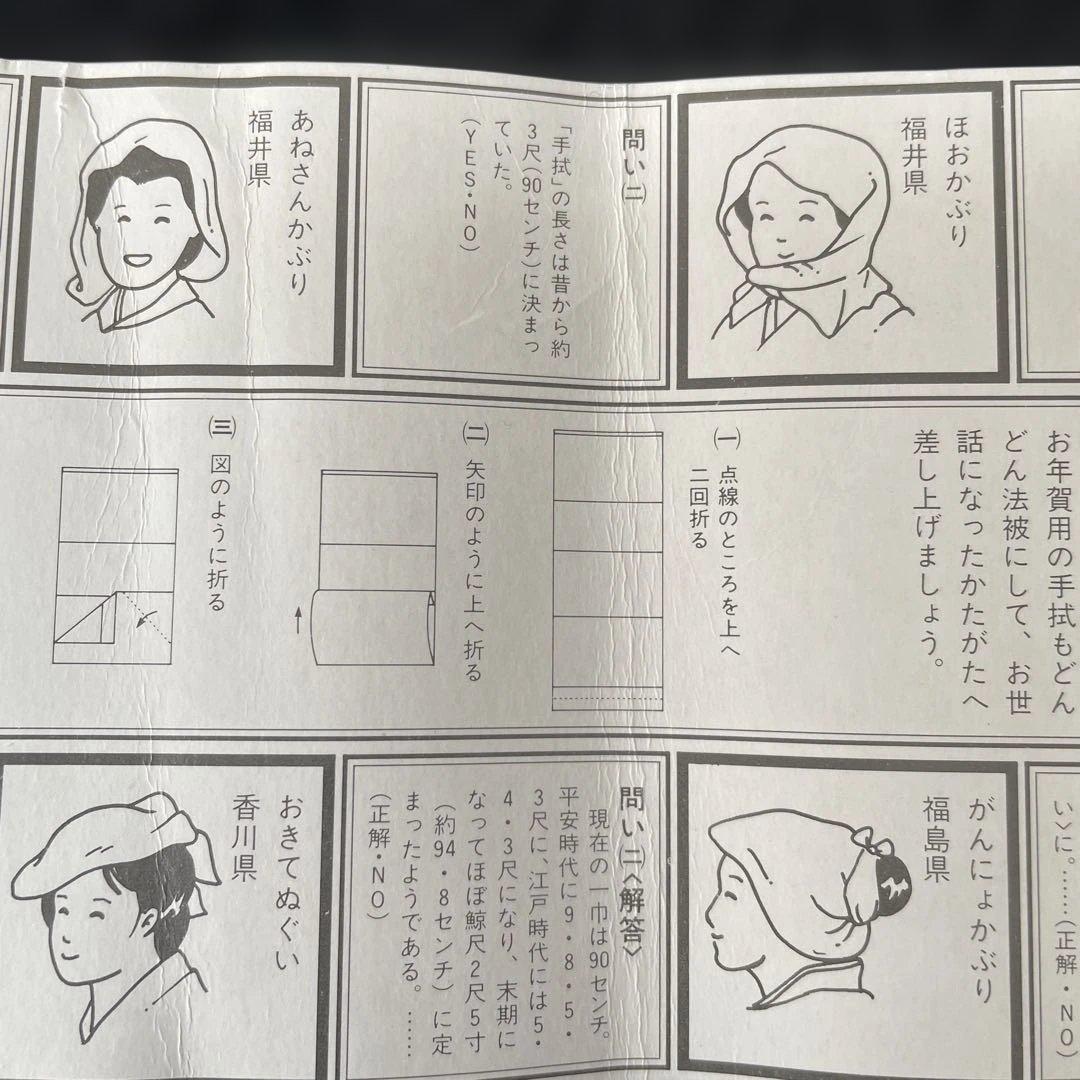 ほおかぶり
福井県
問い㈡
「手拭」の長さは昔から約
3尺(90センチ)に決まっ
ていた。
(YES・NO)
あねさんかぶり
福井県
お年賀用の手拭もどん
どん法被にして、お世
話になったかたがたへ
差し上げましょう。
㈠ 点線のところを上へ
二回折る
㈡ 矢印のように上へ折る
㈢ 図のように折る
い〉に。……(正解・NO)
がんにょかぶり
福島県
問い㈡〈解答〉
現在の一巾は90センチ。
平安時代に9・8・5・
3尺に、江戸時代には5・
4・3尺になり、末期に
なってほぼ鯨尺2尺5寸
(約94・8センチ)に定
まったようである。……
(正解・NO)
おきてぬぐい
香川県